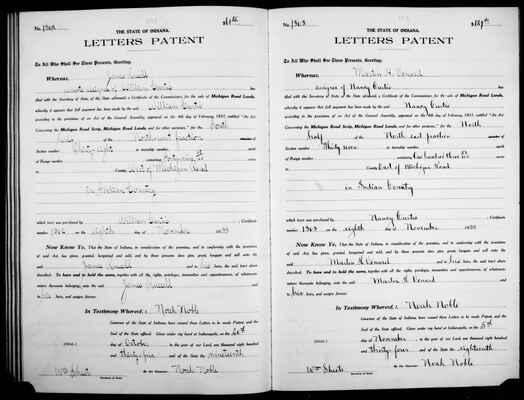 No. 1302
THE STATE OF INDIANA.
LETTERS PATENT
To All Who Shall See These Presents, Greeting:
Whereas, James
assignee of William Curtis has
filed with the Secretary of State, of the State aforesaid, a Certificate of the Commissioner, for the sale of Michigan Road Lands,
whereby it appears that full payment has been made by the said William Curtis
according to the provisions of an Act of the General Assembly, approved on the 4th day of February, 1832, entitled "An Act
Concerning the Michigan Road Scrip, Michigan Road Lands, and for other purposes," for the South
fraction of
Section number Thirty eight number
of Range number containing
acres, East of Michigan Road
in Indian Country
which tract was purchased by William Curtis, Certificate
number 1302 on eighth day of November 1833
Now Know Ye, That the State of Indiana, in consideration of the premises, and in conformity with the provisions
of said Act, has given, granted, bargained and sold, and by these presents does give, grant, bargain and sell unto the
said James and his heirs, the said tract above
described. To have and to hold the same, together with all the rights, privileges, immunities and appurtenances, of whatsoever
nature thereunto belonging, unto the said James
and to his heirs, and assigns forever.
In Testimony Whereof, I Noah Noble
Governor of the State of Indiana, have caused these Letters to be made Patent, and the
Seal of the State affixed. Given under my hand at Indianapolis, on the
(SEAL) day of October in the year of our Lord one thousand eight hundred
and thirty-five and of the State the nineteenth
By the Governor: Noah Noble
Wm Sheets
Secretary of State.
No. 1303
THE STATE OF INDIANA.
LETTERS PATENT
To All Who Shall See These Presents, Greeting:
Whereas, Martin H.
assignee of Nancy Curtis has
filed with the Secretary of State, of the State aforesaid, a Certificate of the Commissioner, for the sale of Michigan Road Lands,
whereby it appears that full payment has been made by the said Nancy Curtis
according to the provisions of an Act of the General Assembly, approved on the 4th day of February, 1832, entitled "An Act
Concerning the Michigan Road Scrip, Michigan Road Lands, and for other purposes," for the North
half of the North east fraction of
Section number Thirty number
of Range number containing
acres, East of Michigan Road
in Indian Country
which tract was purchased by Nancy Curtis, Certificate
number 1303 on eighth day of November 1833
Now Know Ye, That the State of Indiana, in consideration of the premises, and in conformity with the provisions
of said Act, has given, granted, bargained and sold, and by these presents does give, grant, bargain and sell unto the
said Martin H. and his heirs, the said tract above
described. To have and to hold the same, together with all the rights, privileges, immunities and appurtenances, of whatsoever
nature thereunto belonging, unto the said Martin H.
and to his heirs, and assigns forever.
In Testimony Whereof, I Noah Noble
Governor of the State of Indiana, have caused these Letters to be made Patent, and the
Seal of the State affixed. Given under my hand at Indianapolis, on the
(SEAL) day of November in the year of our Lord one thousand eight hundred
and thirty-four and of the State the eighteenth
By the Governor: Noah Noble
Wm Sheets
Secretary of State.